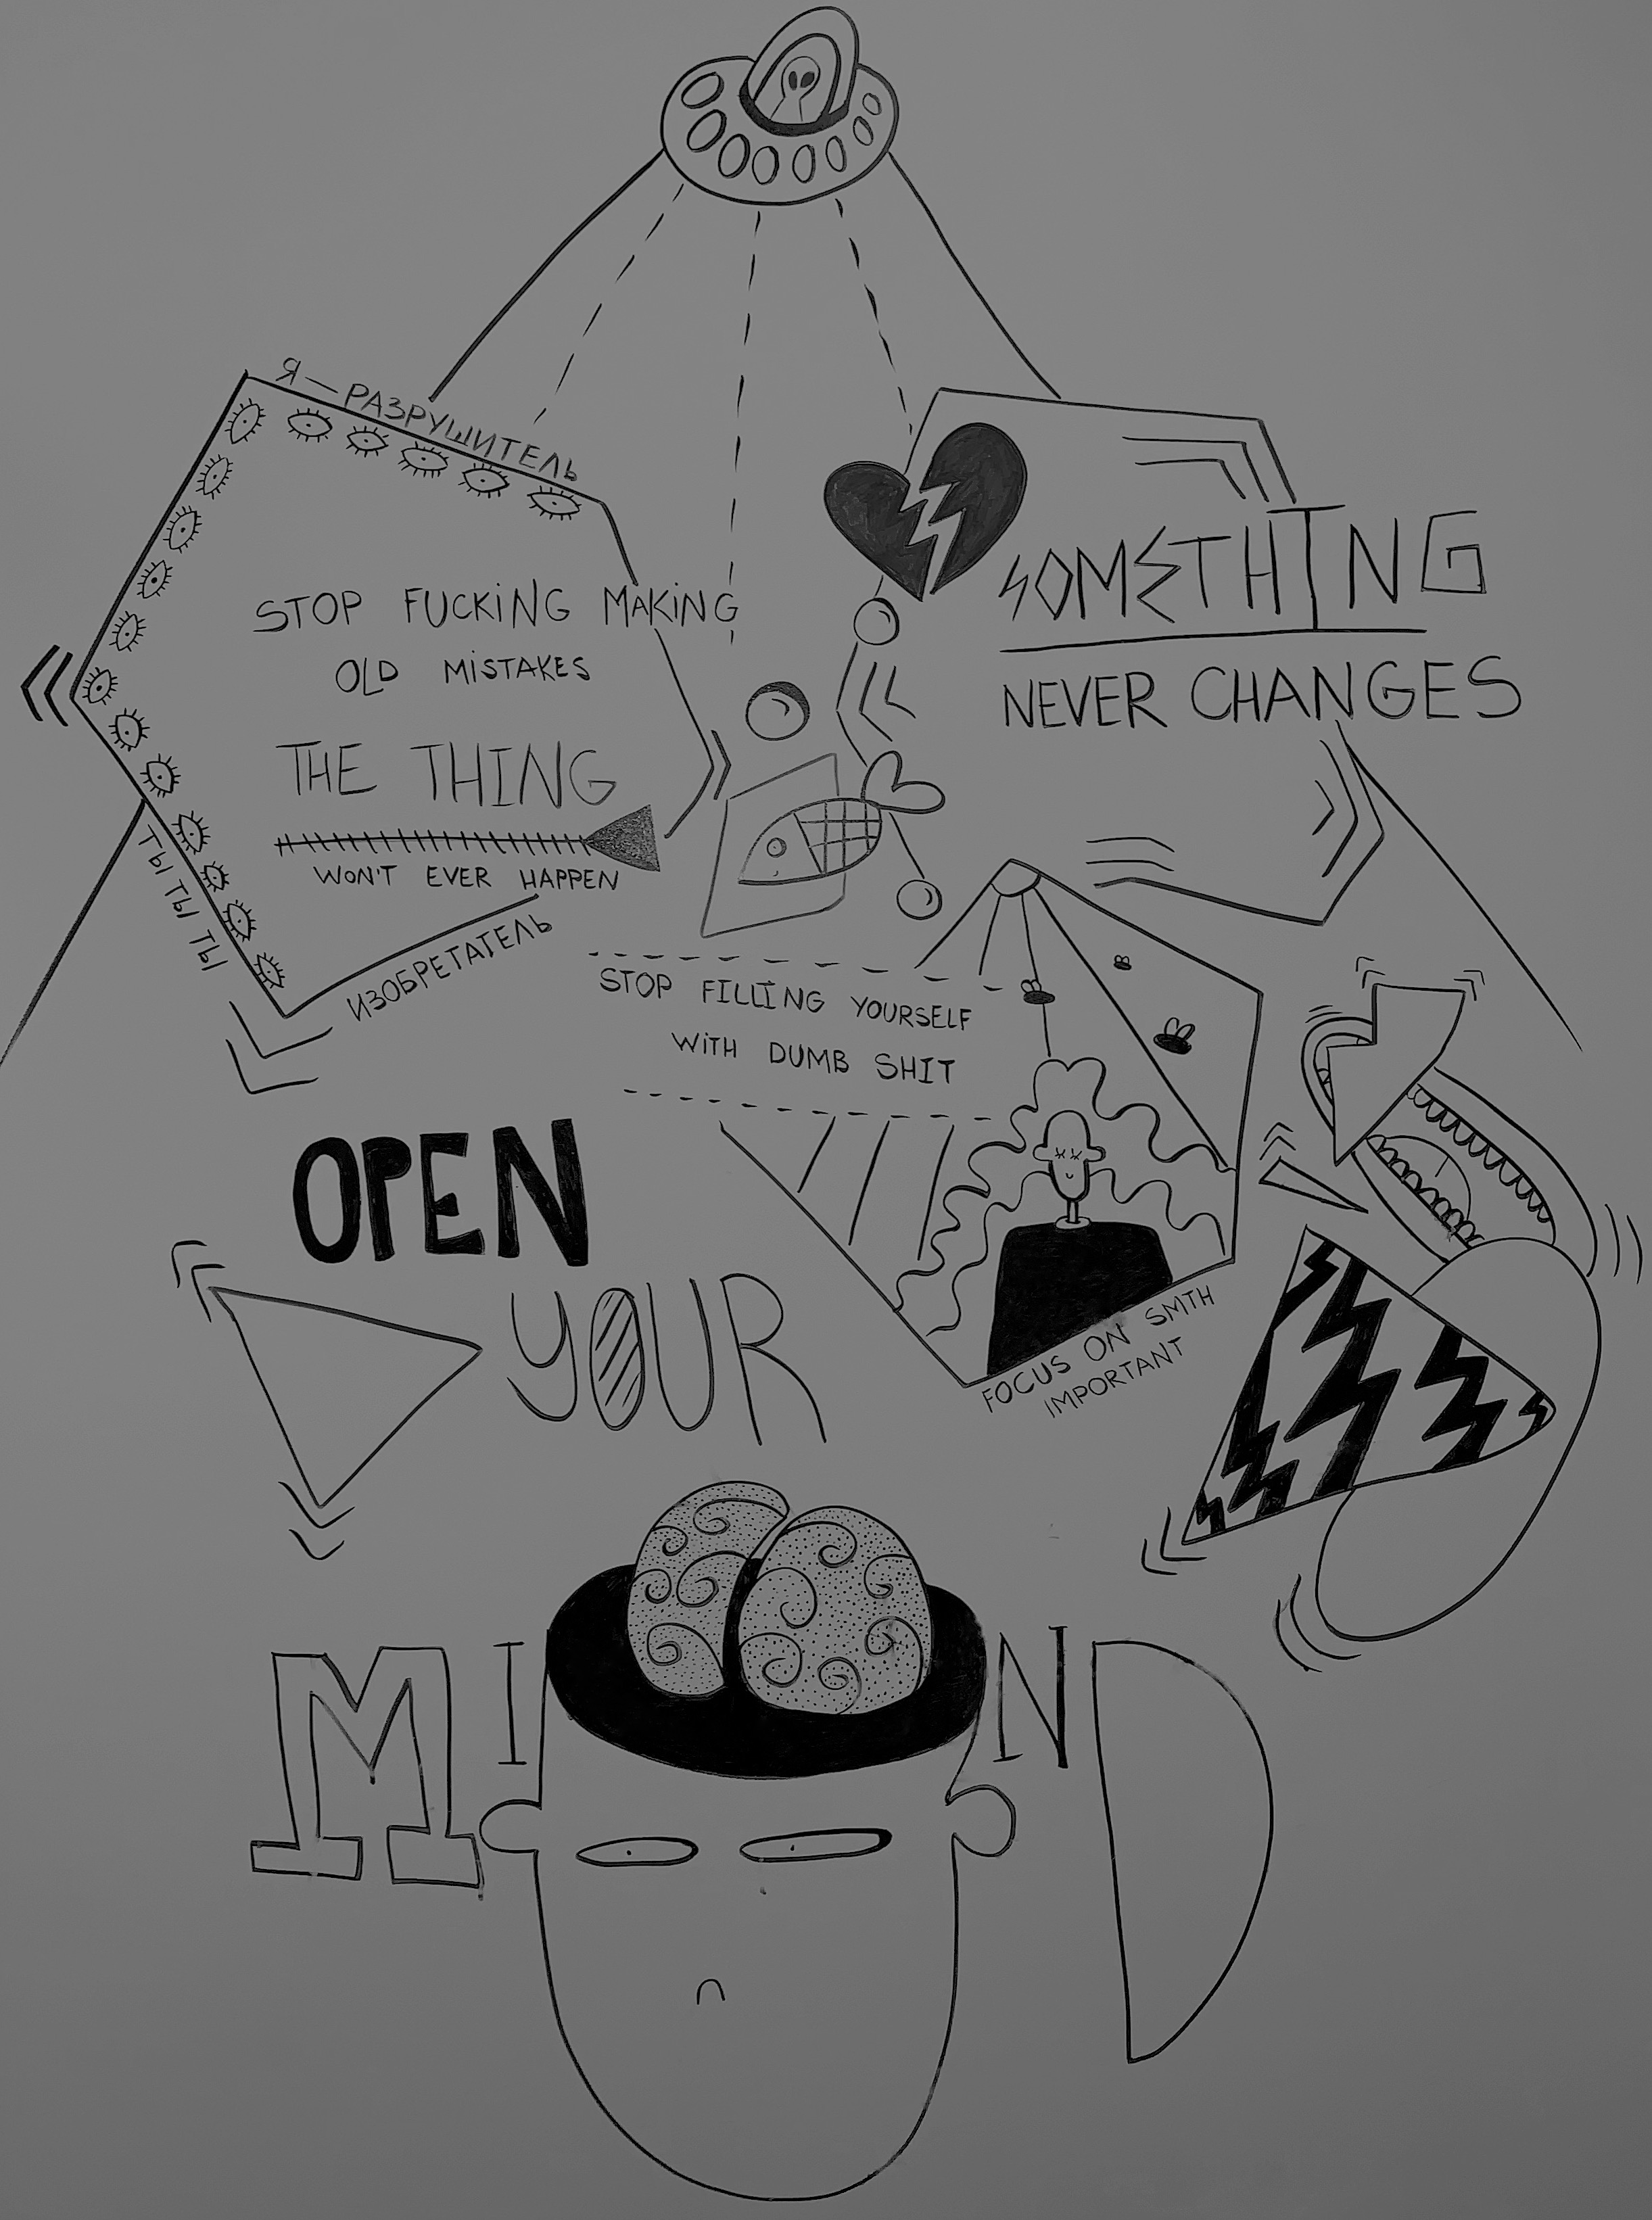 Я — РАЗРУШИТЕЛЬ
STOP FUCKING MAKING
OLD MISTAKES
THE THING
WON'T EVER HAPPEN
ТЫ ТЫ ТЫ
ИЗОБРЕТАТЕЛЬ
SOMETHING
NEVER CHANGES
STOP FILLING YOURSELF
WITH DUMB SHIT
FOCUS ON SMTH
IMPORTANT
OPEN
YOUR
MIND